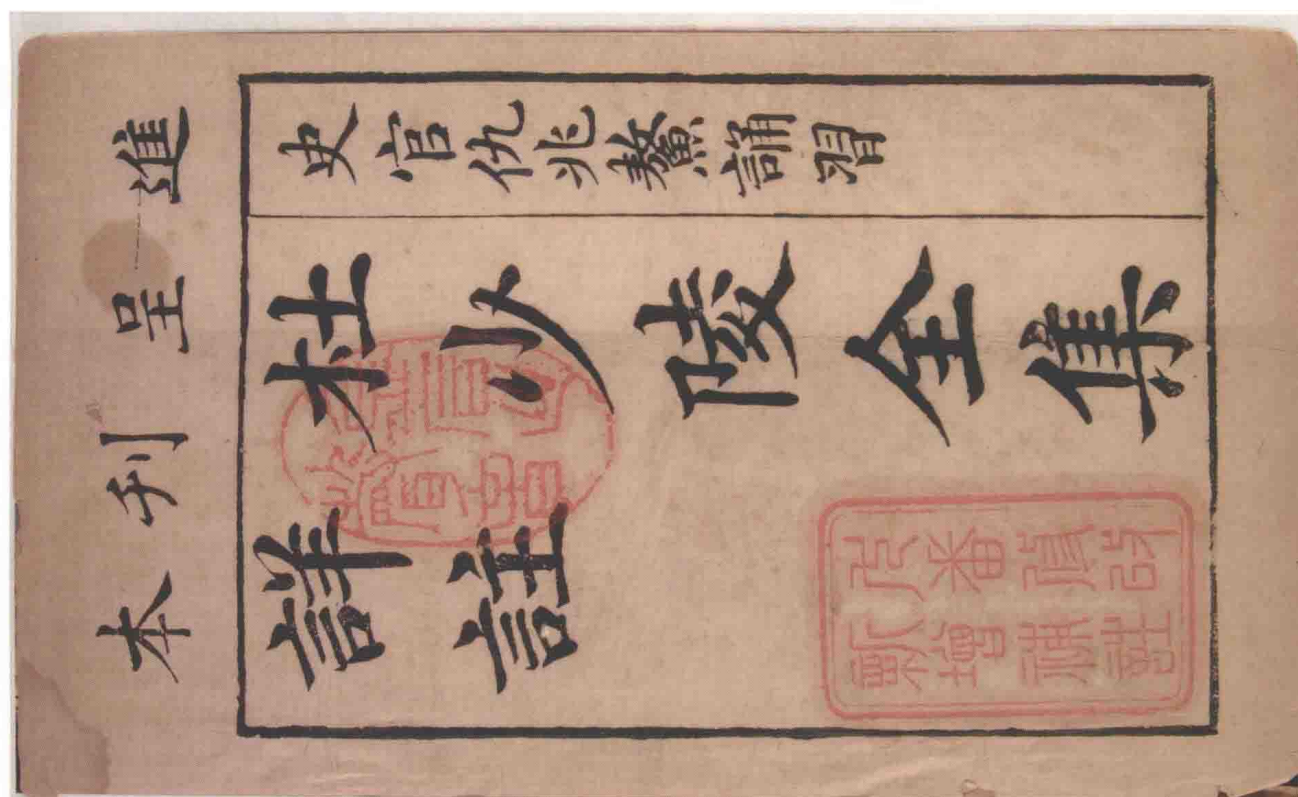 進呈刊本
史官仇兆鰲誦習
杜少陵全集
詳註